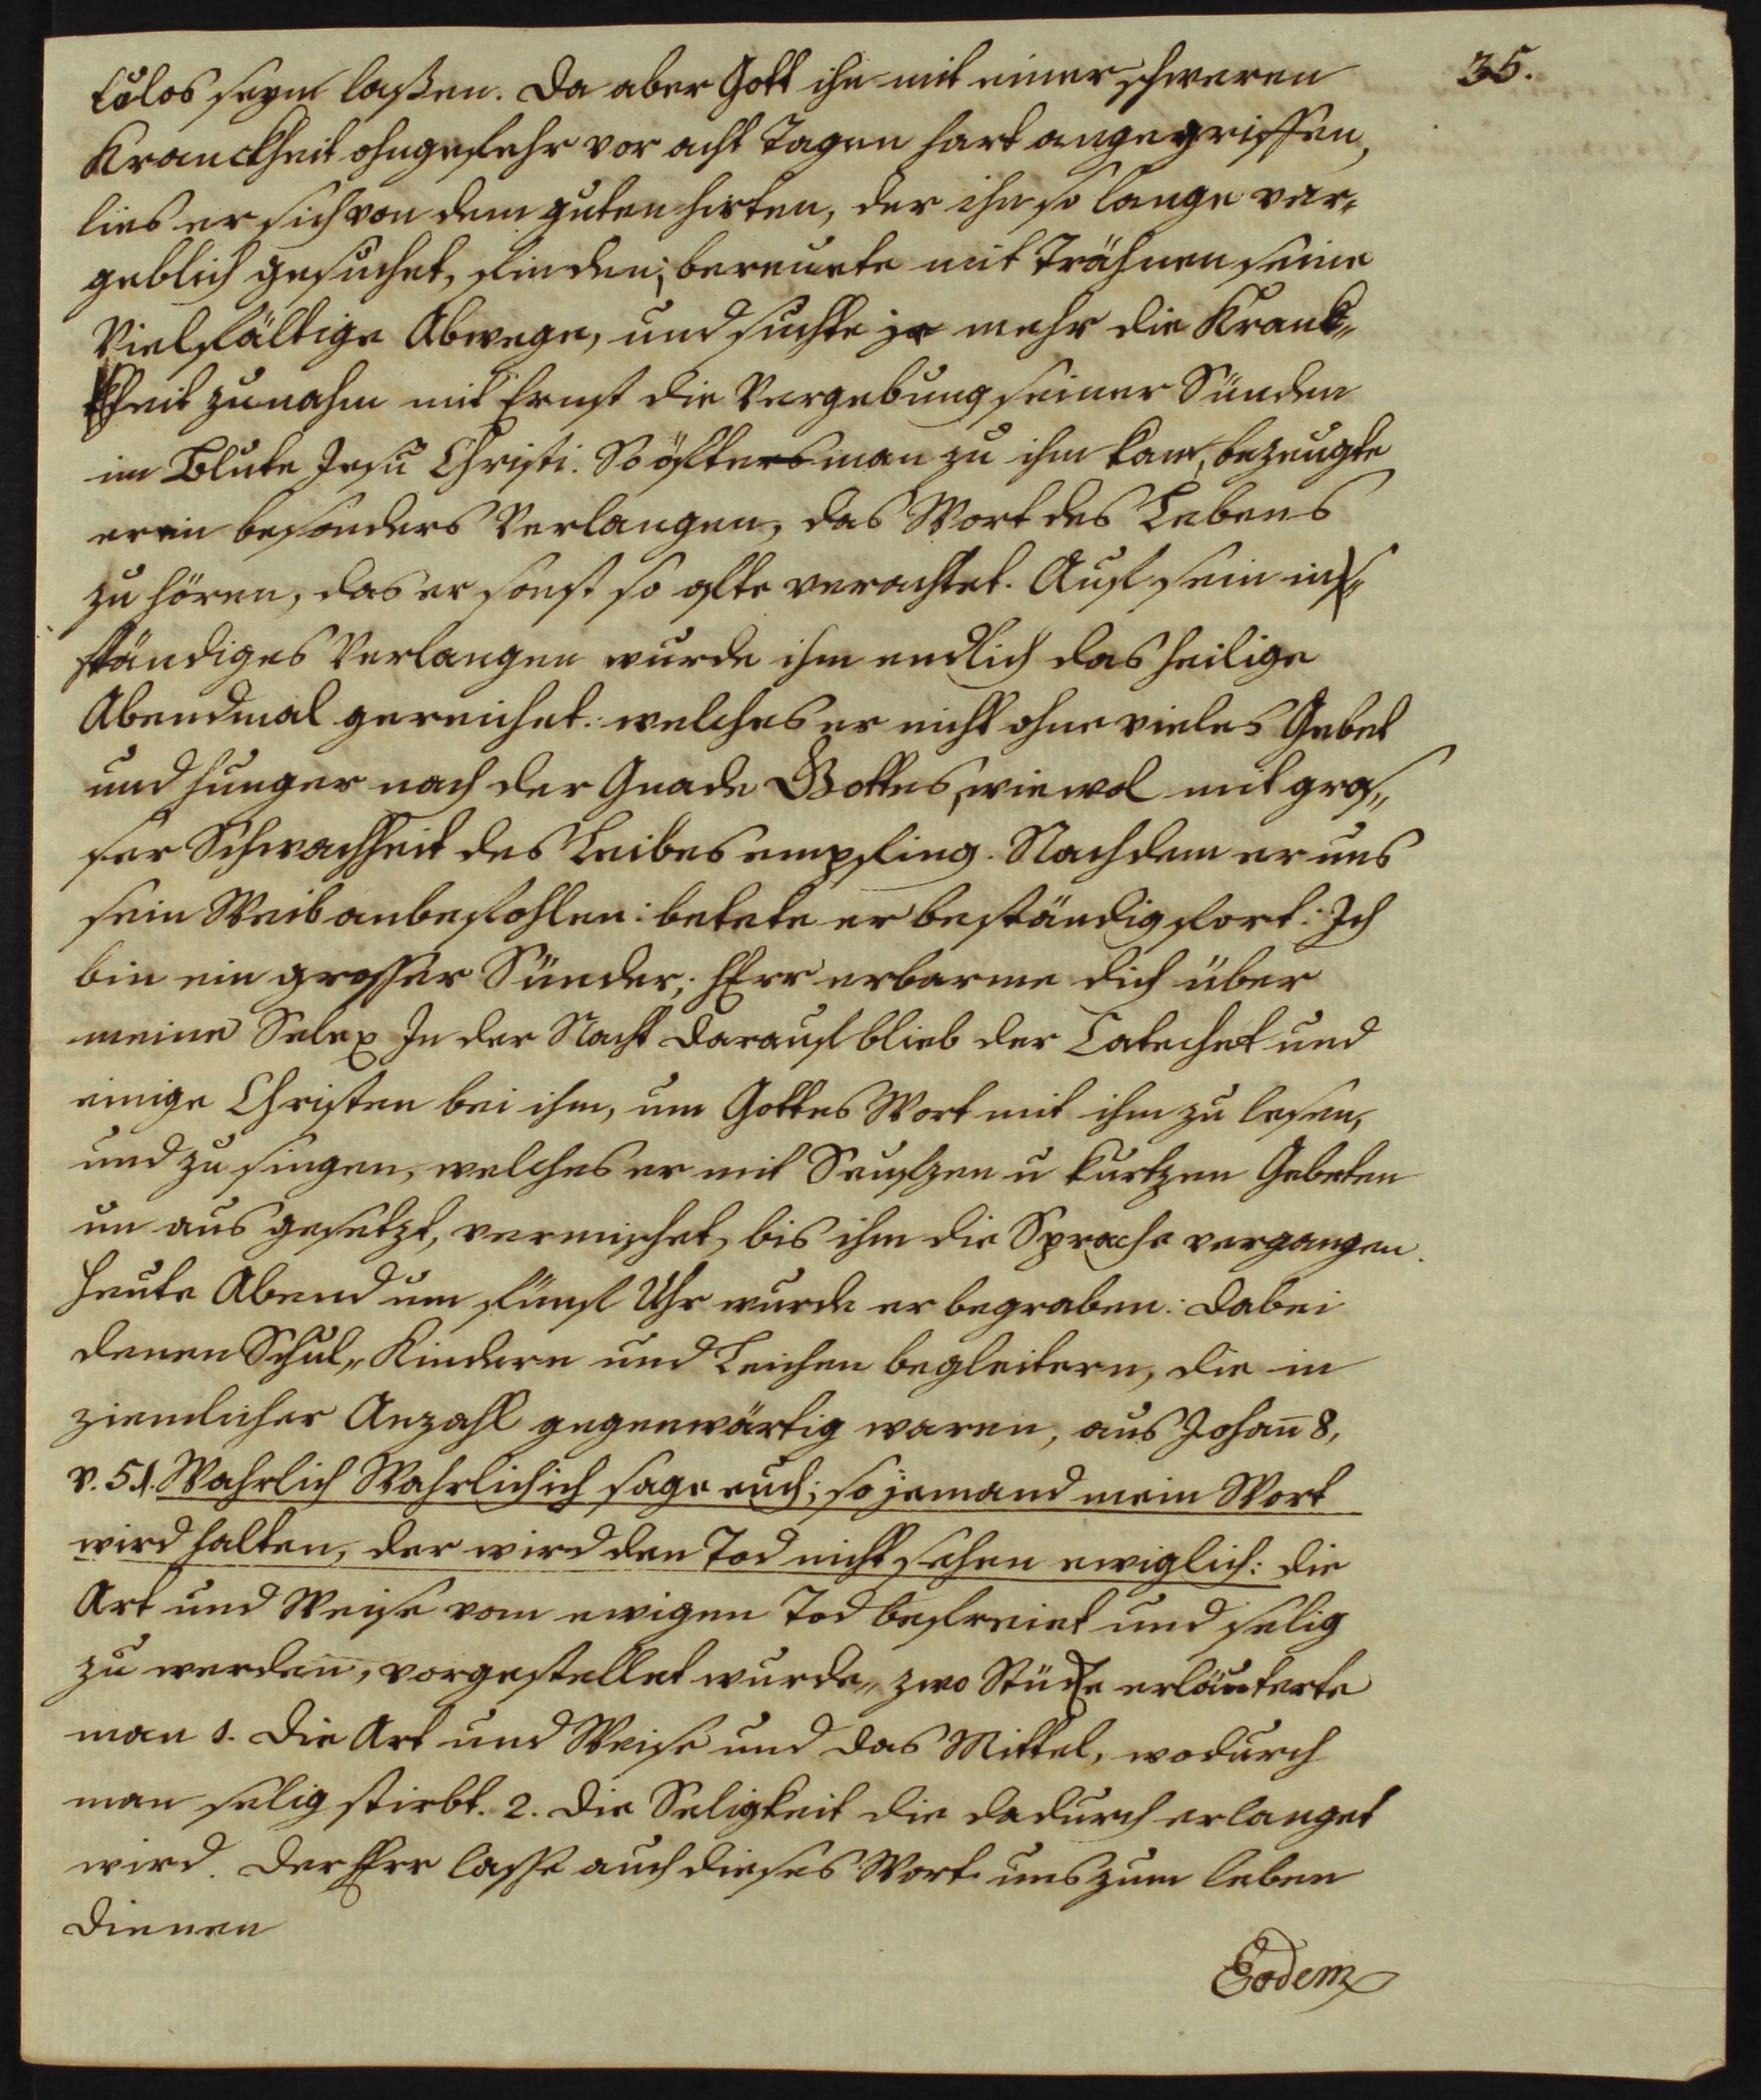 35.
tülos seyn laßen. Da aber Gott ihn mit einer schweren
Kranckheit ohngefehr vor acht Tagen hart angegriffen,
lies er sich von dem guten hirten, der ihn so lange ver-
geblich gesuchet, finden; bereuete mit Trähnen seine
Vielfältige Abwege, und suchte je mehr die Krank-
heit zunahm mit Ernst die Vergebung seiner Sünden
im Blute Jesu Christi. So öfters man zu ihm kam, bezeugte
er ein besonders Verlangen, das Wort des Lebens
zu hören, das er sonst so ofte verachtet. Auf sein in-
ständiges Verlangen wurde ihm endlich das heilige
Abendmal gereichet: welches er nicht ohne vieles Gebet
und hunger nach der Gnade Gottes, wiewol mit gros-
ser Schwachheit des Leibes empfing. Nachdem er uns
sein Weib anbefohlen: betete er beständig fort: Ich
bin ein grosser Sünder; HErr erbarme dich über
meine Sele. In der Nacht darauf blieb der Catechet und
einige Christen bei ihm, um Gottes Wort mit ihm zu lesen,
und zu singen, welches er mit Seufzen u kurtzen Gebeten
un aus gesetzt, vermischet, bis ihm die Sprache vergangen.
Heute Abend um fünf Uhr wurde er begraben: dabei
denen Schul-Kindern und Leichen begleitern, die in
ziemlicher Anzahl gegenwärtig waren, aus Johan̄ 8,
v. 51. Wahrlich Wahrlich ich sage euch; so jemand mein Wort
wird halten, der wird den Tod nicht sehen ewiglich: die
Art und Weise vom ewigen Tod befreiet und selig
zu werden, vorgestellet wurde, zwo Stücke erläuterte
man 1. Die Art und Weise und das Mittel, wodurch
man selig stirbt. 2. Die Seligkeit die dadurch erlanget
wird. Der HErr lasse auch dieses Wort uns zum leben
dienen
Eodem